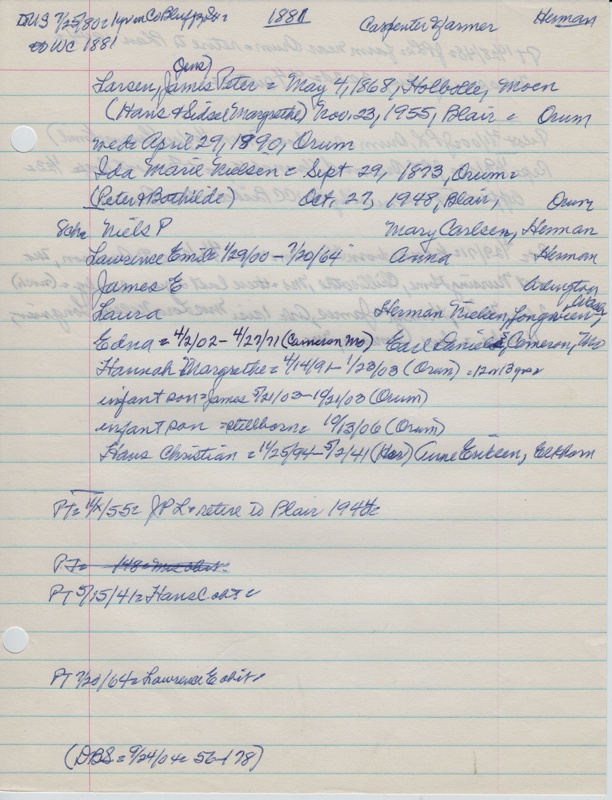 1881 Carpenter & Farmer Herman
WC 1881
(Jens)
Larsen, James Peter = May 4, 1868, Holbolle, Moen
(Hans & Sidsel Margrethe) Nov. 23, 1955, Blair = Orum
wed = April 29, 1890, Orum
Ida Marie Nielsen = Sept 29, 1873, Orum =
(Peter & Bothilde) Oct. 27, 1948, Blair, Orum
Niels P Mary Carlsen, Herman
Lawrence Emil = 1/29/00 - 7/20/64 Anna Herman
James E Arlington
Laura Herman Nielsen,
Edna = 4/2/02 - 4/27/71 (Cameron Mo) Earl Daniels, Cameron, Mo
Hannah Margrethe = 4/14/91 - 1/23/03 (Orum) =
infant son = James 5/21/03 - 10/21/03 (Orum)
infant son = stillborn = 10/13/06 (Orum)
Hans Christian = 11/25/94 - 5/2/41 (Her) Erikson,
PT = JPL = retire to Blair 1944
PT =
PT 5/15/41 = Hans C obit =
PT 7/20/64 = Lawrence E obit =
(DBS = 9/24/04 = 56-178)